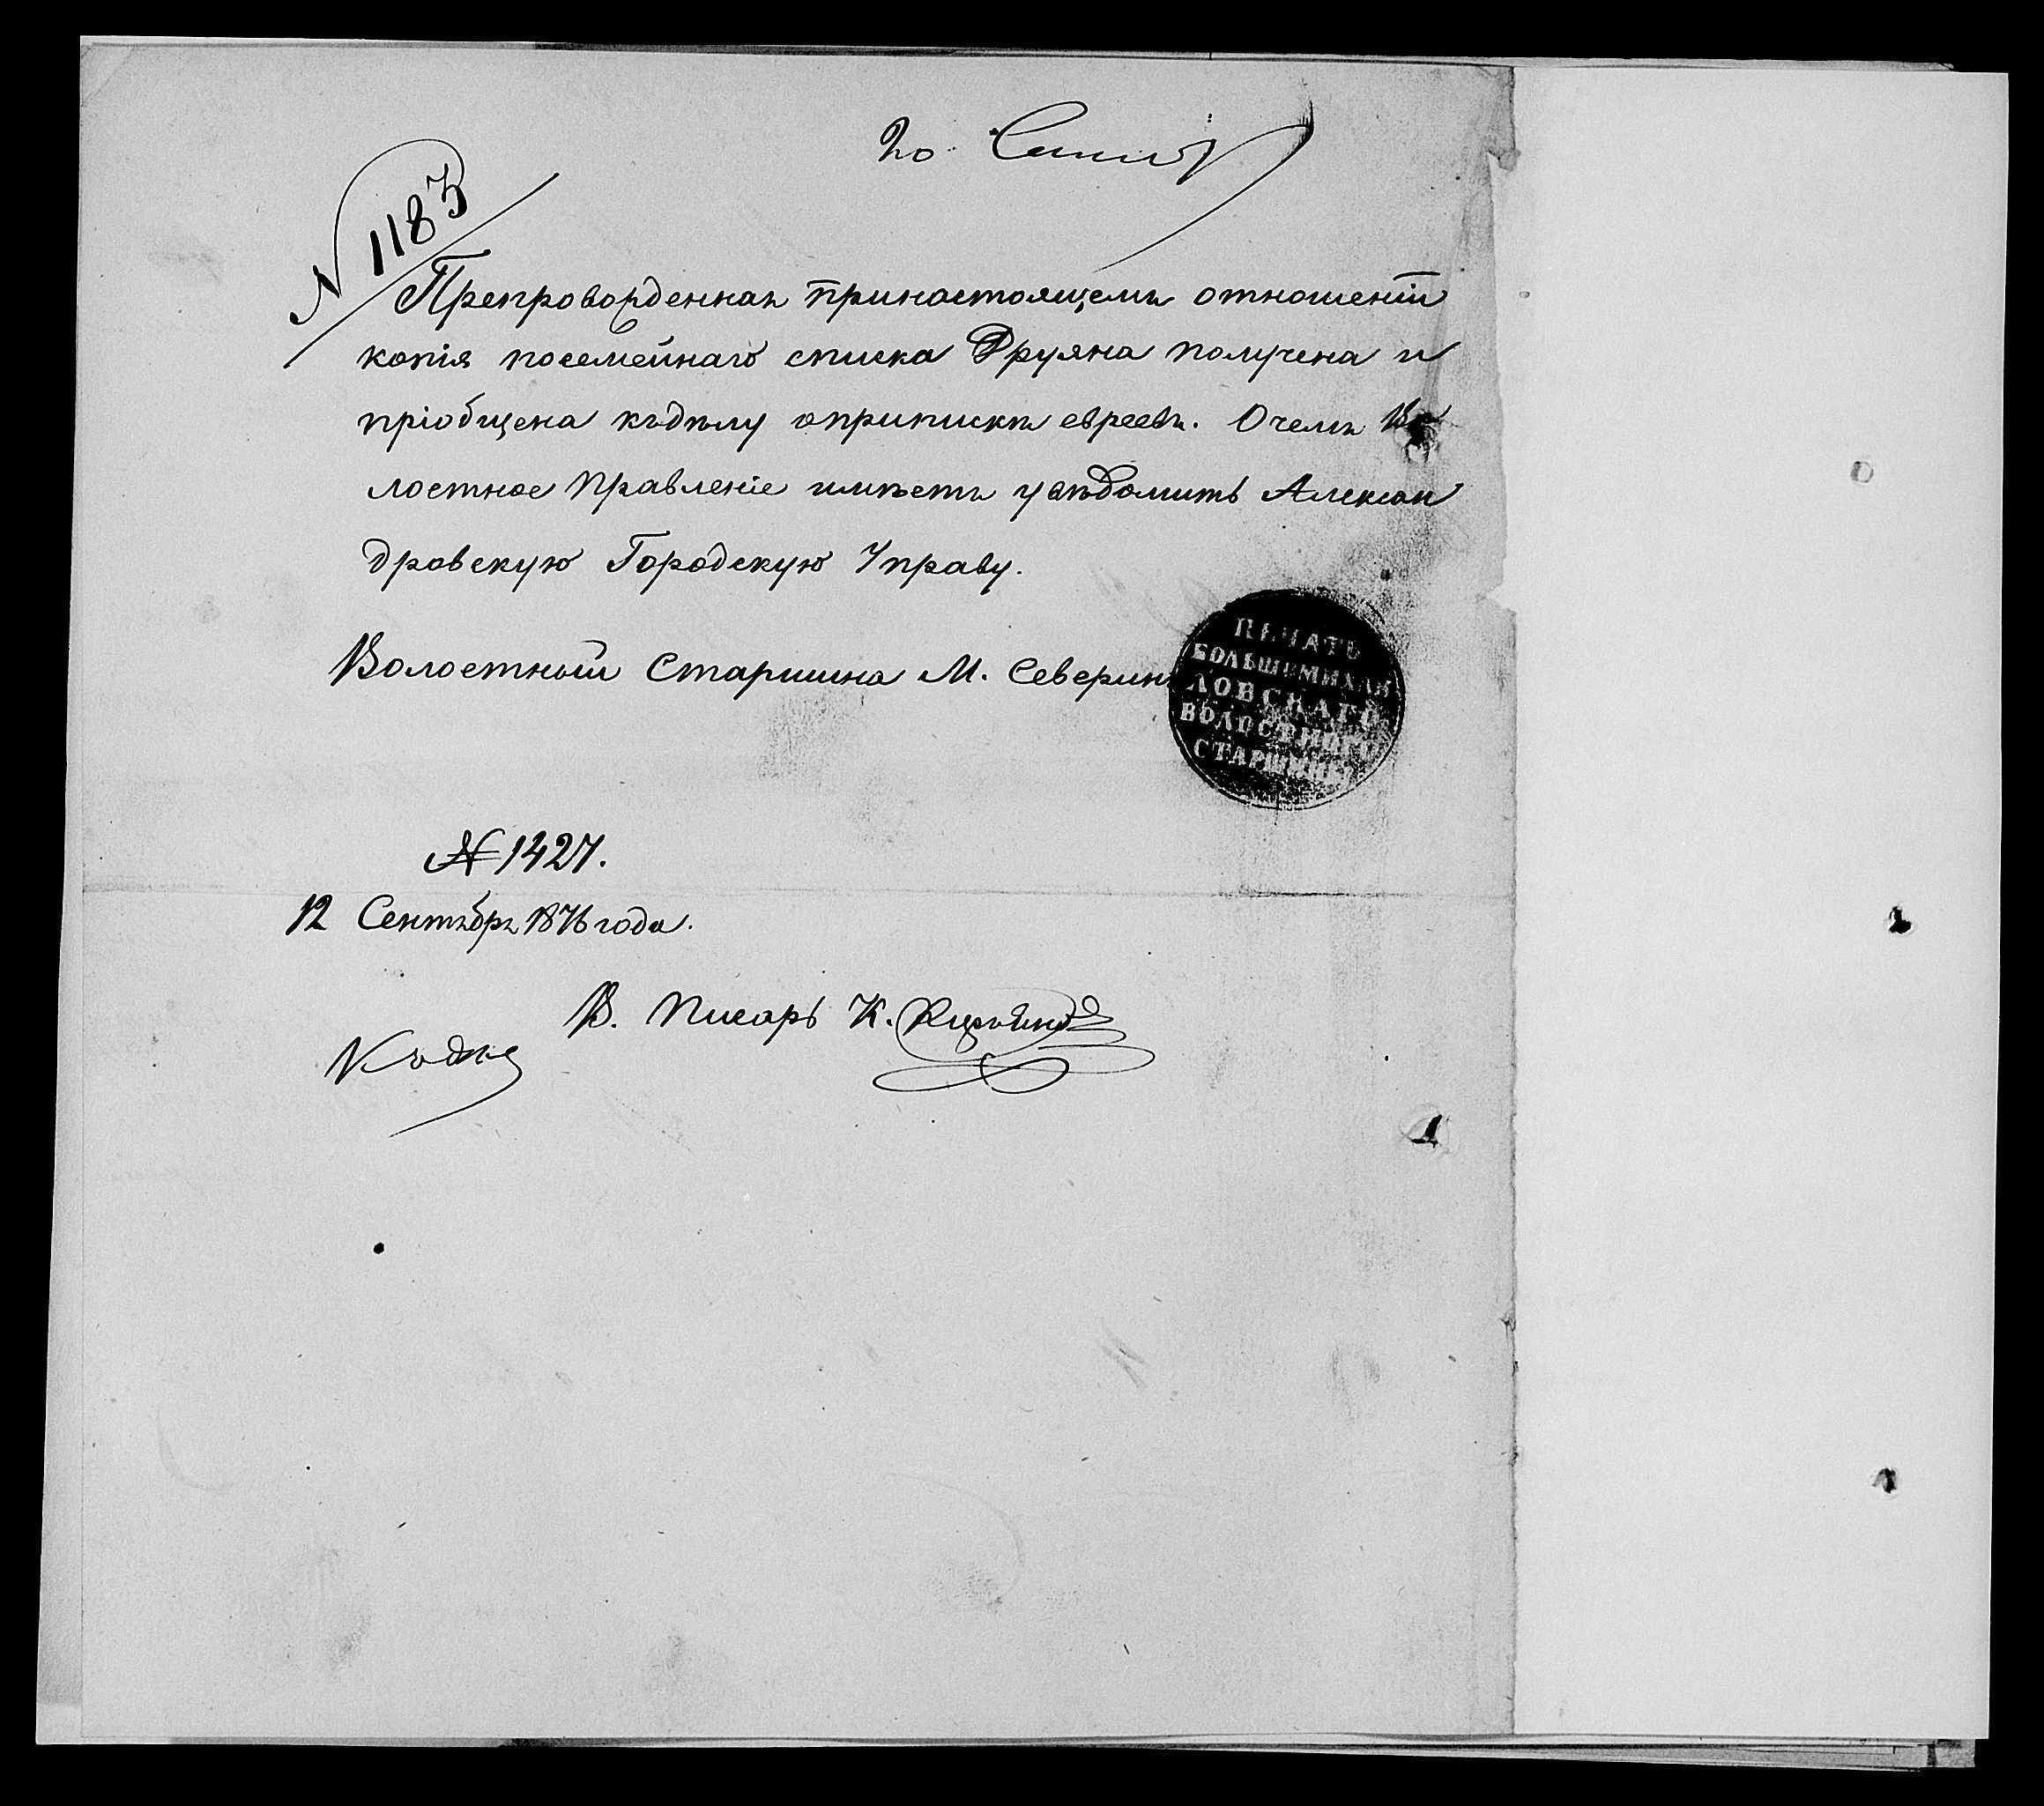 20 Сент
N 1183
Препровожденная принастоящемъ отношеніи
копія посемейнаго списка Друяна получена и
пріобщена къдѣлу оприпискѣ евреевъ. Очемъ Во
лостное Правленіе имѣетъ увѣдомить Алексан
дровскую Городскую Управу.
Волостный Старшина М. Северин
ПЕЧАТЬ
БОЛЬШЕМИХАЙ
ЛОВСКАГО
ВОЛОСТНОГО
СТАРШИНЫ
№ 1427.
12 Сентября 1876 года.
В. Писарь К.
Къ дѣлу